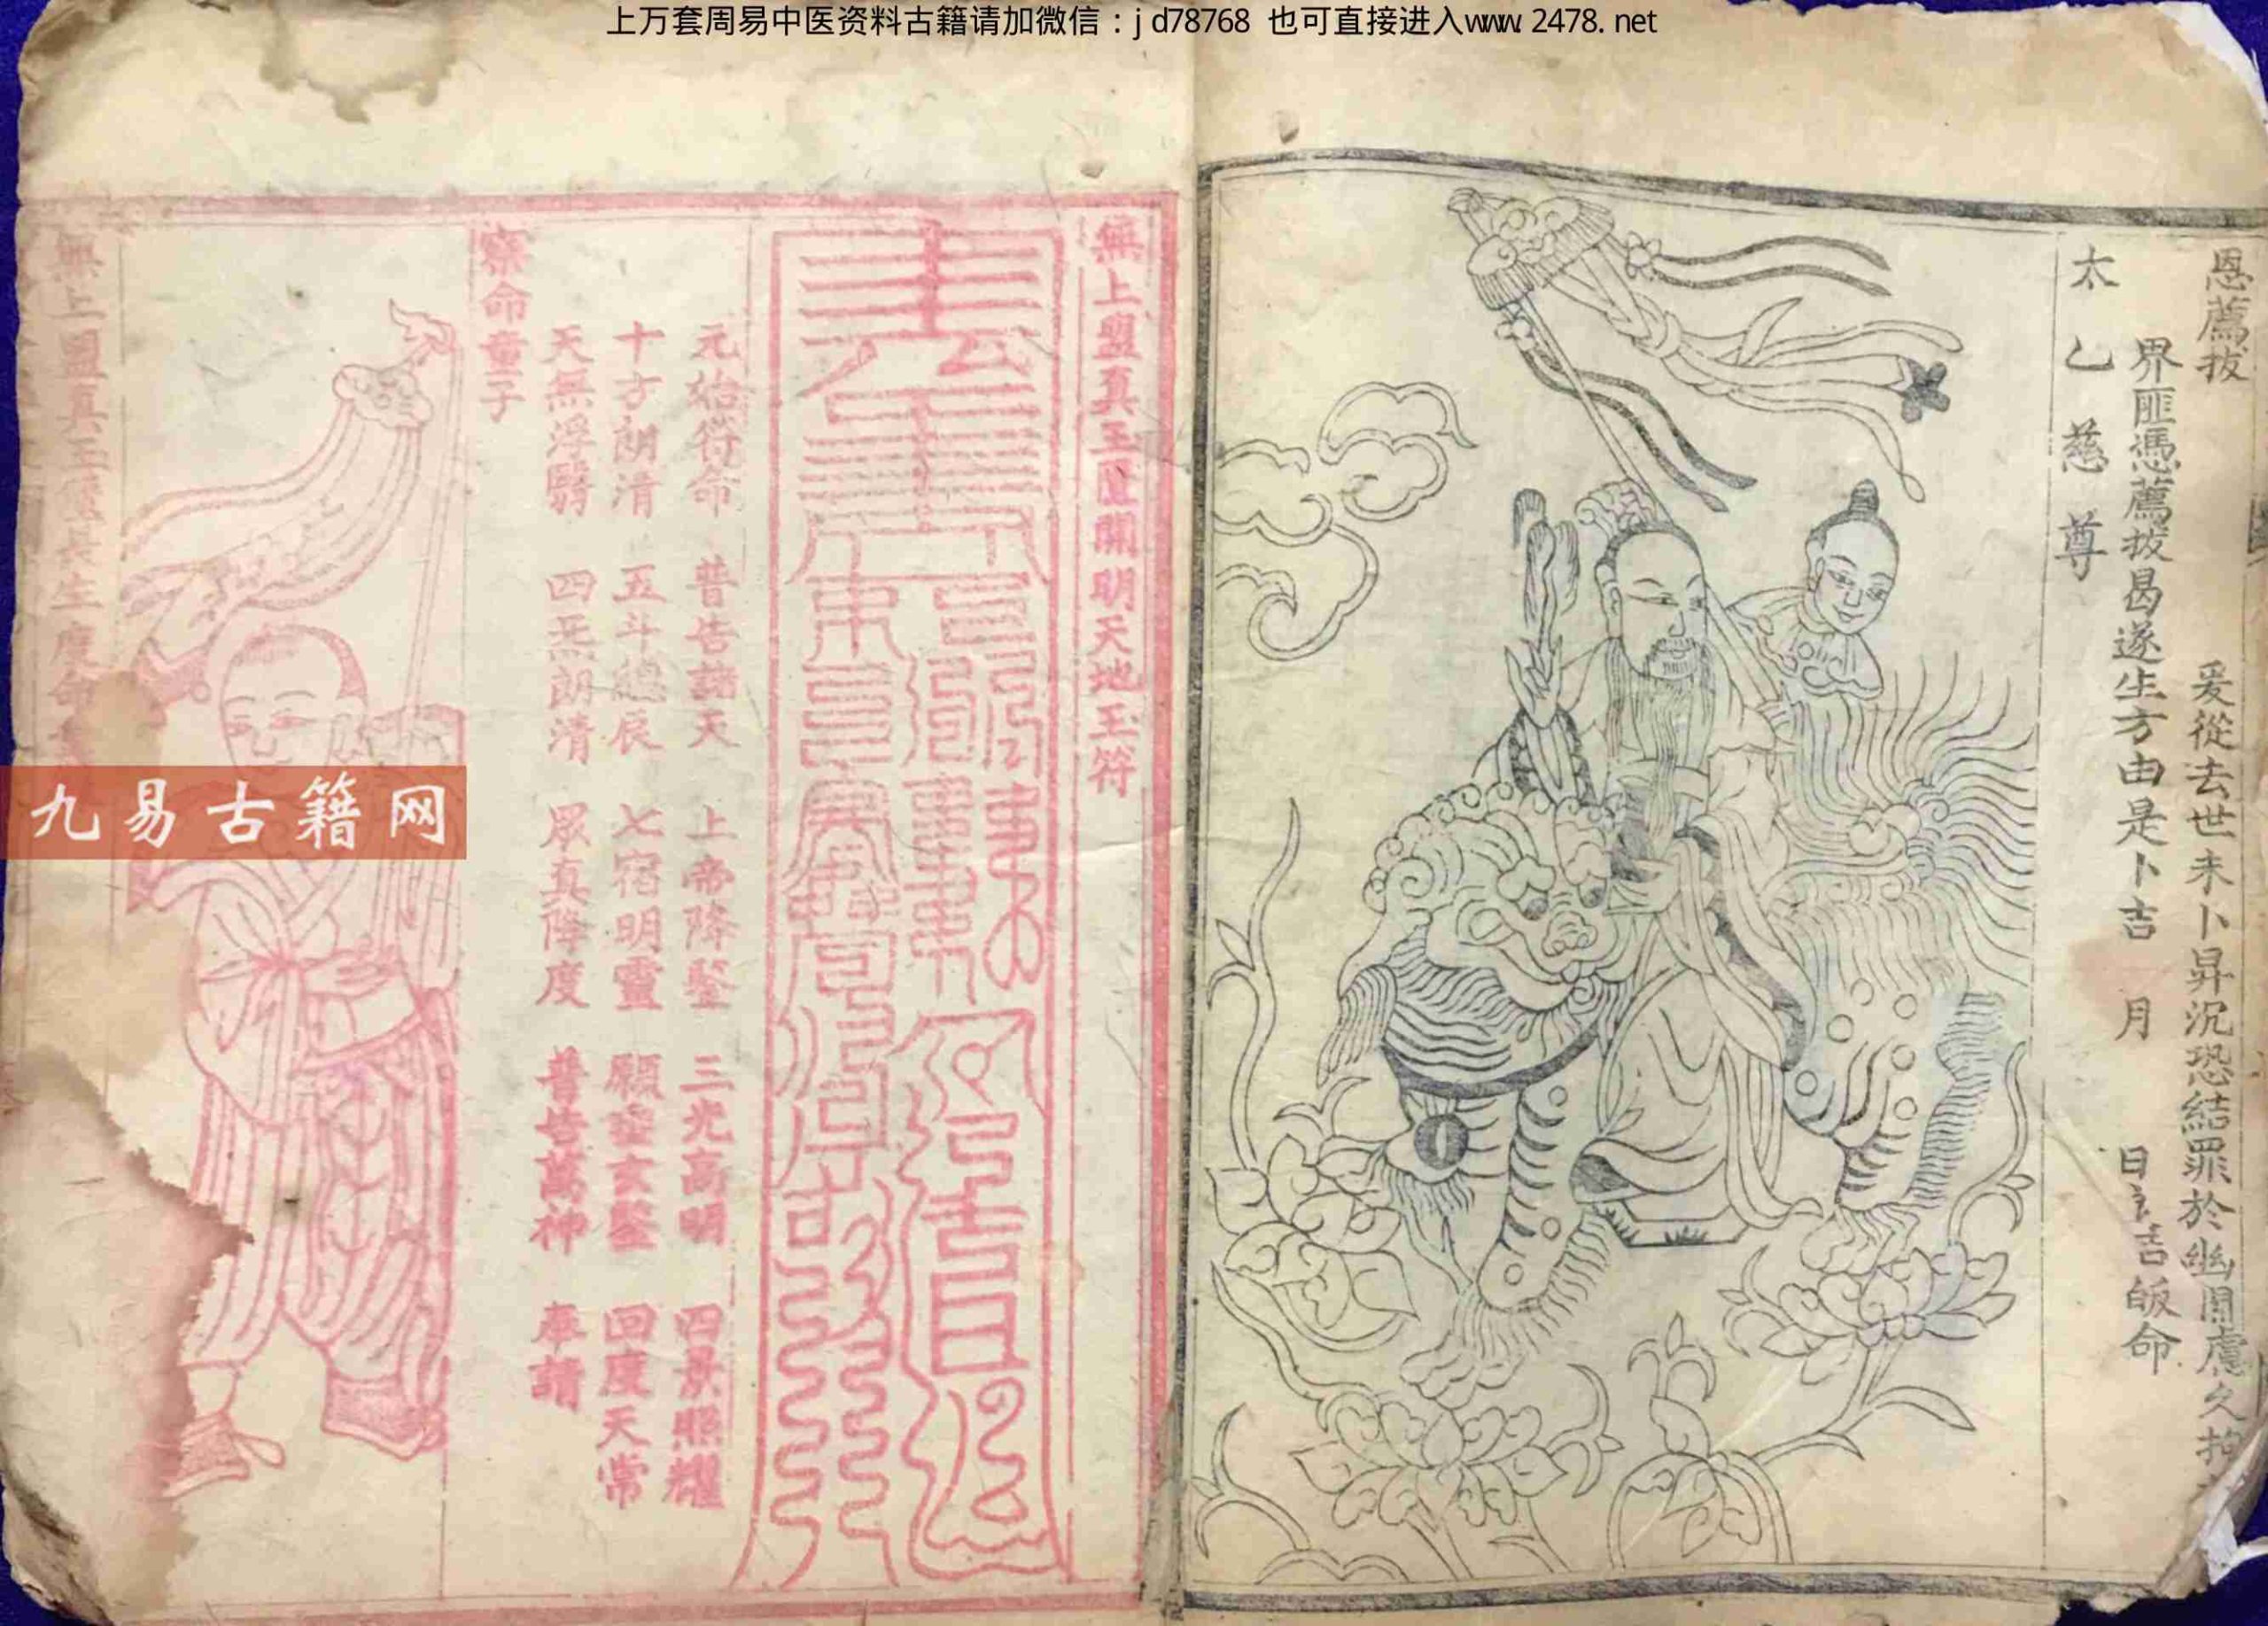 上万套周易中医资料古籍请加微信：jd78768 也可直接进入www.2478.net
恩薦拔 爰從去世未卜昇沉恐結罪於幽關慮久拘
界匪憑薦拔曷遂生方由是卜吉 月 日 告皈命
太乙慈尊
無上盟真玉匱開明天地玉符
元始符命 普告諸天 上帝降鑒 三光高明 四景照耀
十方朗清 五斗總辰 七宿明靈 願垂玄鑒 回度天常
天無浮翳 四炁朗清 眾真降度 普告萬神 奉請
稟命童子
無上盟真玉匱長生度命
九易古籍网